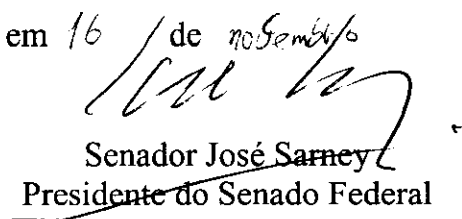 em 16 de novembro
Senador José Sarney
Presidente do Senado Federal